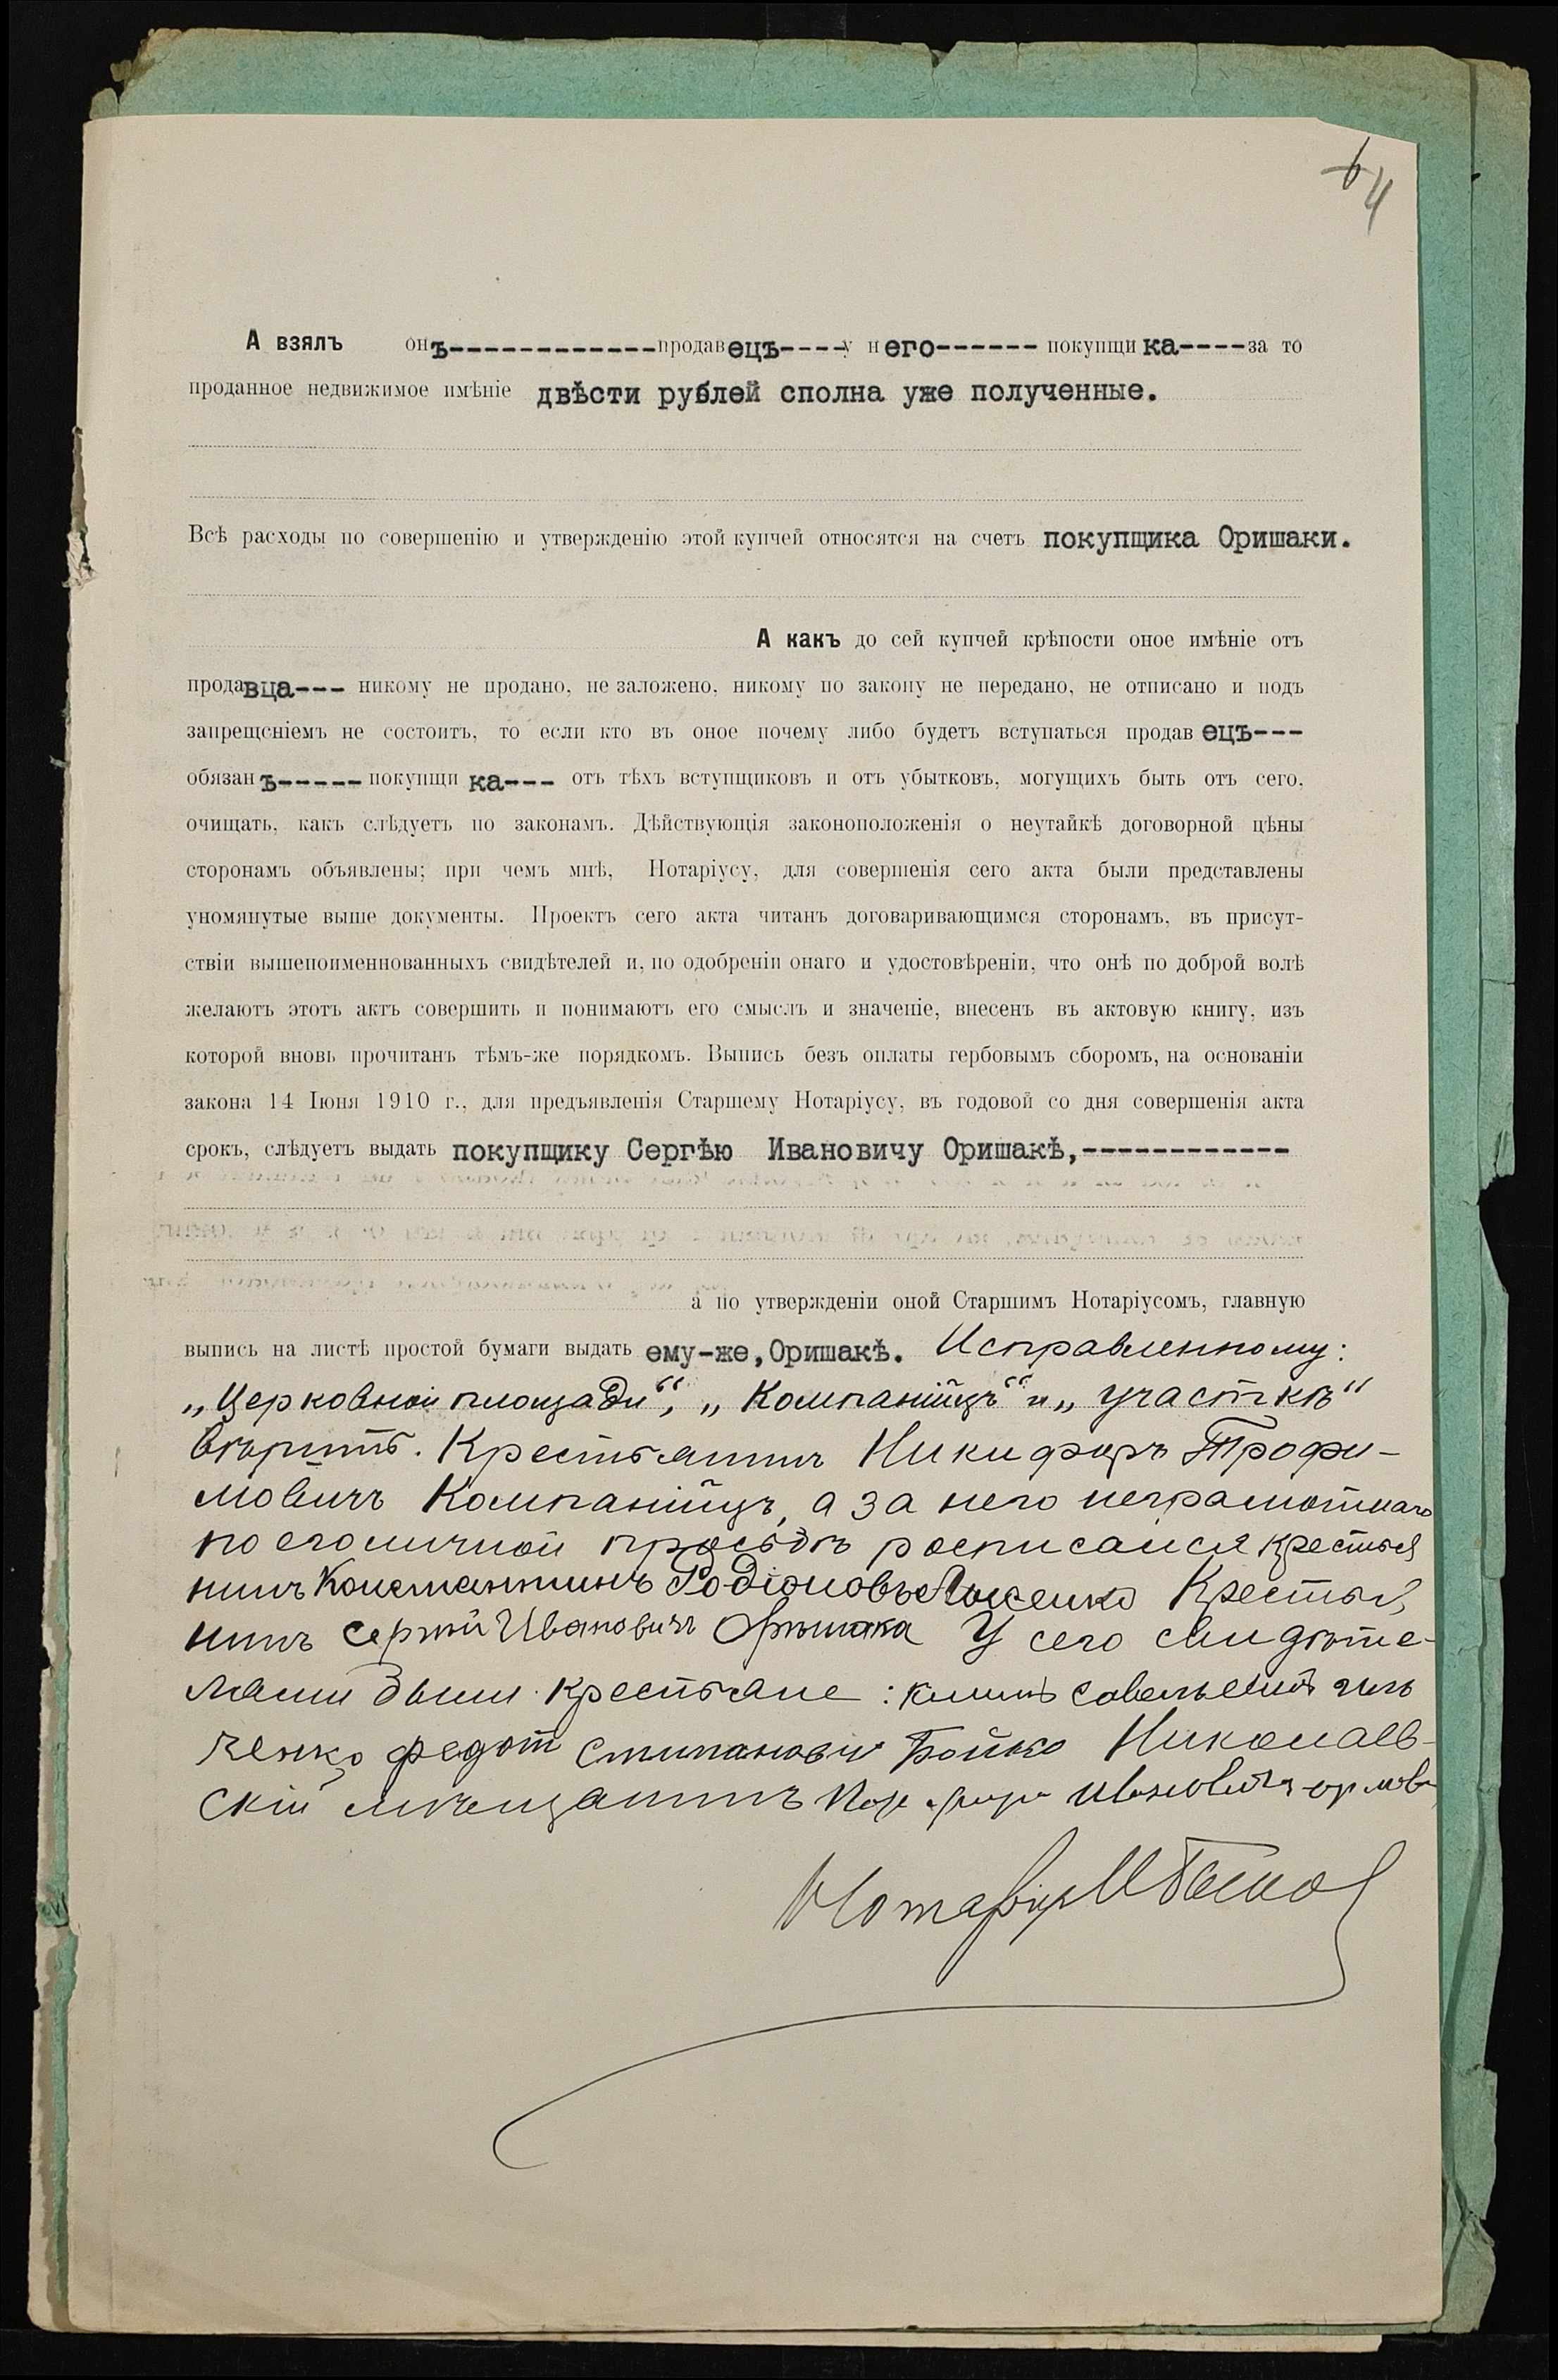 4
А взялъ онъ-------------продавецъ----у него------ покупщика----за то
проданное недвижимое имѣніе двѣсти рублей сполна уже полученные.
Всѣ расходы по совершенію и утвержденію этой купчей относятся на счетъ покупщика Оришаки.
А какъ до сей купчей крѣпости оное имѣніе отъ
продавца--- никому не продано, не заложено, никому по закону не передано, не отписано и подъ
запрещеніемъ не состоитъ, то если кто въ оное почему либо будетъ вступаться продавецъ---
обязанъ----- покупщика--- отъ тѣхъ вступщиковъ и отъ убытковъ, могущихъ быть отъ сего,
очищать, какъ слѣдуетъ по законамъ. Дѣйствующія законоположенія о неутайкѣ договорной цѣны
сторонамъ объявлены; при чемъ мнѣ, Нотаріусу, для совершенія сего акта были представлены
упомянутые выше документы. Проектъ сего акта читанъ договаривающимся сторонамъ, въ присут-
ствіи вышепоименнованныхъ свидѣтелей и, по одобреніи онаго и удостовѣреніи, что онѣ по доброй волѣ
желаютъ этотъ актъ совершить и понимаютъ его смыслъ и значеніе, внесенъ въ актовую книгу, изъ
которой вновь прочитанъ тѣмъ-же порядкомъ. Выпись безъ оплаты гербовымъ сборомъ, на основаніи
закона 14 Іюня 1910 г., для предъявленія Старшему Нотаріусу, въ годовой со дня совершенія акта
срокъ, слѣдуетъ выдать покупщику Сергѣю Ивановичу Оришакѣ,------------
а по утвержденіи оной Старшимъ Нотаріусомъ, главную
выпись на листѣ простой бумаги выдать ему-же, Оришакѣ. Исправленному:
„Церковной площади“, „Компанійцъ“ и „участкѣ“
вѣрить. Крестьянинъ Никифоръ Трофи-
мовичъ Компанійцъ, а за него неграмотнаго
по его личной просьбѣ росписался крестья
нинъ Константинъ Родіоновъ Крестья
нинъ Сергѣй Ивановичъ Оришака У сего свидѣте-
лями были крестьяне: Климъ
ченко Федот Бойко Николаев-
скій мѣщанинъ Ивановичъ
Нотаріусъ